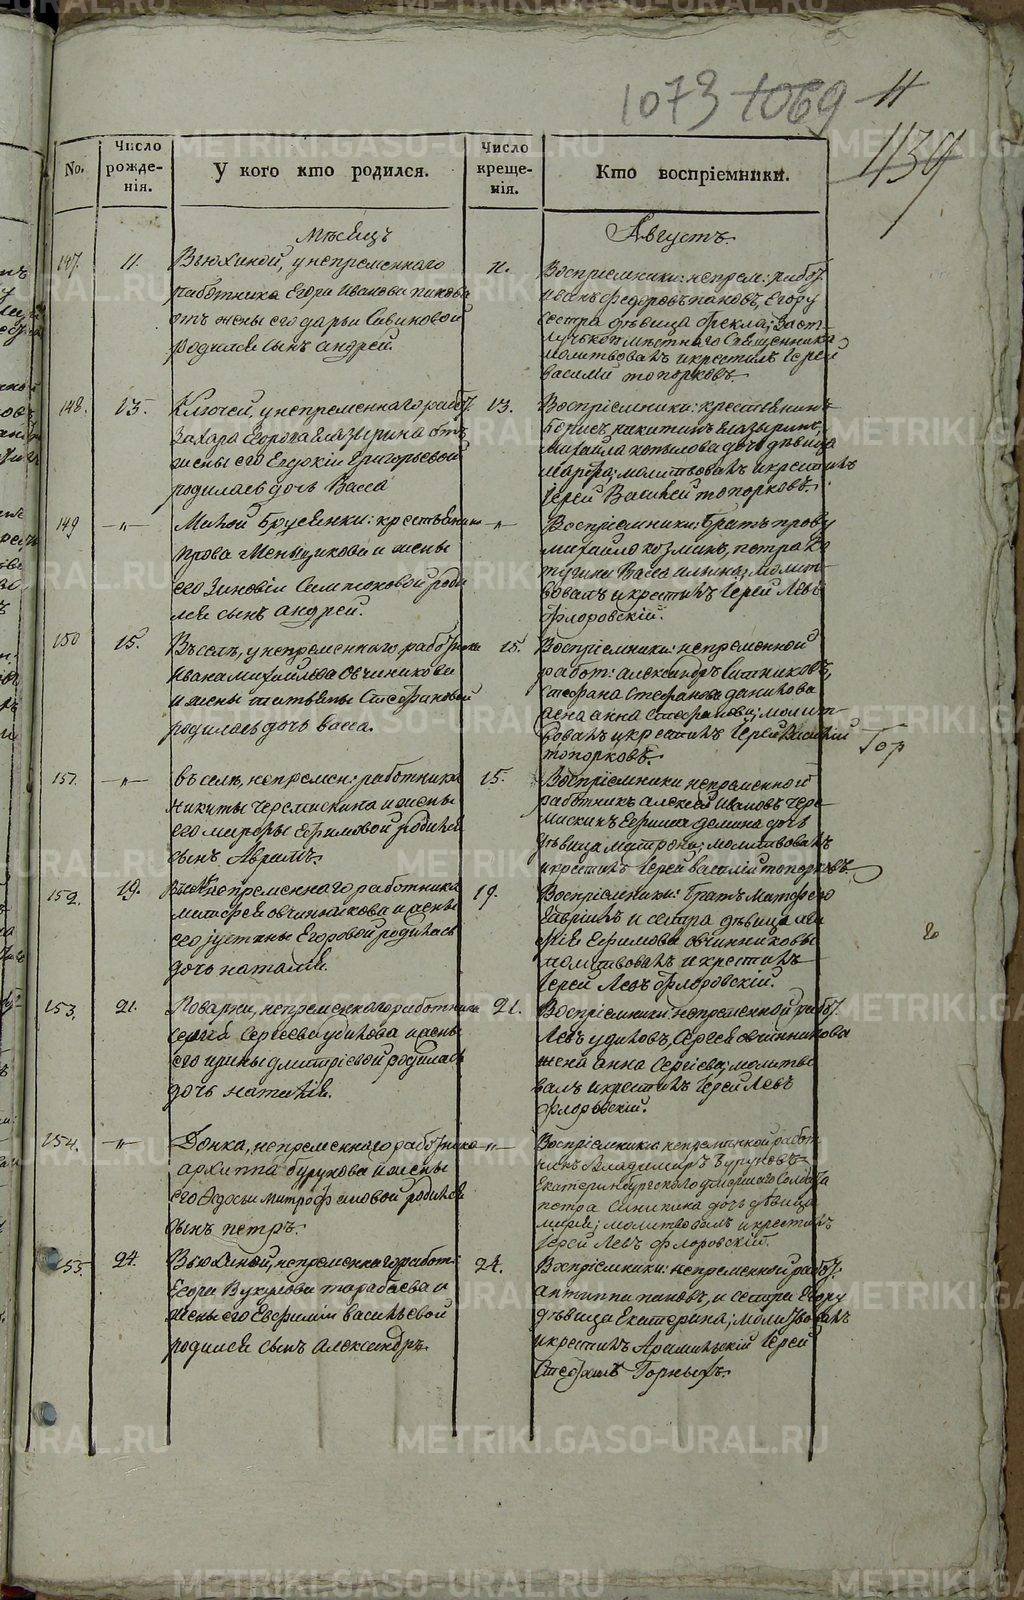 1073 1069 11
1139
No.
Число рожденія.
У кого кто родился.
Число крещенія.
Кто воспріемники.
Мѣсяцъ
Августъ.
147. 11.
Вьюхиной, у непременнаго
работника Егора Иванова
отъ жены его Дарьи Савиновой
родился сынъ Андрей.
11.
Воспріемники: непрем: работ:
Иванъ Федоровъ Пановъ, Егору
сестра дѣвица Фекла;
Священника
молитвовалъ и крестилъ Іерей
Василій Топорковъ.
148. 13.
Ключей, у непременнаго работ:
Захара Глазырина отъ
жены его Евдокіи Григорьевой
родилась дочь Васса
13.
Воспріемники: крестьянинъ
Борисъ Никитинъ Глазыринъ,
Михаила Копылова дочь дѣвица
Марѳа; молитвовалъ и крестилъ
Іерей Василей Топорковъ.
149 -„-
Малой Брусянки: крестьянина
Прова Меньщикова и жены
его Зиновіи родился
сынъ Андрей.
-„-
Воспріемники: братъ Прову
Михайло Козминъ, Петра
Васса Ильина; молитвовалъ
и крестилъ Іерей Левъ
Флоровскій.
150 15.
Въ селѣ, у непременнаго работника
Ивана Михайлова Овчинникова
и жены Татьяны Стефановой
родилась дочь Васса.
15.
Воспріемники: непременной
работ: Александръ Ситниковъ,
Стефана Стефанова Данилова
жена Анна Стефанова; молитвовалъ
и крестилъ Іерей Василій
Топорковъ.
Гор
151. -„-
Въ селѣ, непремен: работника
Никиты Черемискина и жены
его Марфы Ефимовой родился
сынъ Авраамъ.
15.
Воспріемники непременной
работникъ Алексей Ивановъ Черемискинъ
Ефима Демина дочь
дѣвица Матрона; молитвовалъ
и крестилъ Іерей Василій Топорковъ.
152. 19.
непременнаго работника
Матфея Овчинникова и жены
его Іустины Егоровой родилась
дочь Наталія.
19.
Воспріемники: братъ Матфею
Гавріилъ и сестра дѣвица
Ефимовы Овчинниковы
молитвовалъ и крестилъ
Іерей Левъ Флоровскій.
153. 21.
Поварни, непременнаго работника
Сергія Сергѣева Удилова и жены
его Ирины Дмитріевой родилась
дочь Наталія.
21.
Воспріемники: непременной работ:
Левъ Удиловъ, Сергея Овчинникова
жена Анна Сергіева; молитвовалъ
и крестилъ Іерей Левъ
Флоровскій.
154. -„-
непременнаго работника
Архиппа Бурухова и жены
его Ѳедосьи Митрофановой родился
сынъ Петръ.
-„-
Воспріемники: непременной работникъ
Владимиръ Буруховъ
Екатеринбургскаго солдата
Петра Синицина дочь дѣвица
Марія; молитвовалъ и крестилъ
Іерей Левъ Флоровскій.
155. 24.
Вьюхиной, непременнаго работ:
Егора Вукулова Тарабаева и
жены его Евфиміи Васильевой
родился сынъ Александръ.
24.
Воспріемники: непременной работ:
Антиппа Пановъ, и сестра Егору
дѣвица Екатерина; молитвовалъ
и крестилъ Арамильскій Іерей
Стефанъ Горныхъ.
METRIKI.GASO-URAL.RU